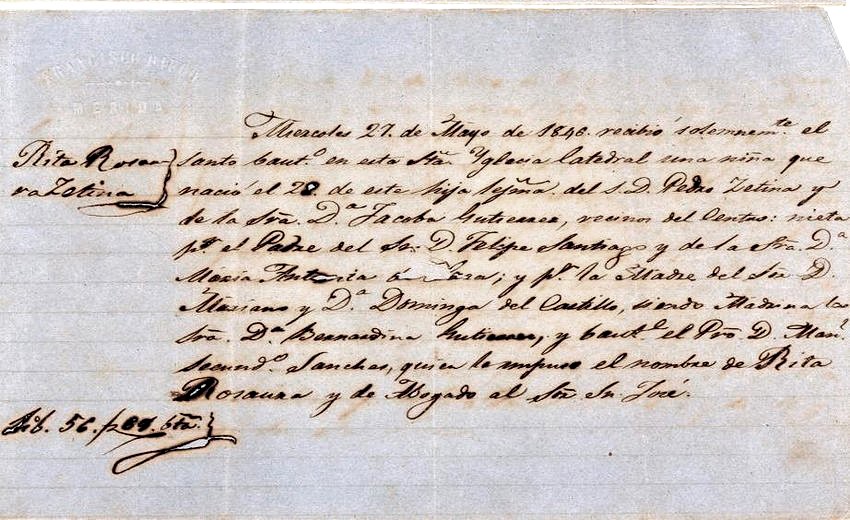 MERIDA
Miercoles 27. de Mayo de 1846. recibió solemnemte. el
Rita Rosau
ra Zetina
santo bauto. en esta Sta. Yglecia Catedral una niña que
nació el de este hija lejma. del S. D. Pedro Zetina y
de la Sra. Da. Jacoba Gutierrez, vecinos del Centro: nieta
pr. el Padre del Sr. D. Felipe Santiago y de la Sra. Da.
Maria Antonia; y pr. la Madre del Sr. D.
Mariano y Da. Dominga del Castillo, siendo Madrina la
Sra. Da. Bernardina Gutierrez, y bauto. el Pro. D. Manl.
Secundo. Sanches, quien le impuso el nombre de Rita
Rosaura y de Abogado al Sor. Sn. José.
Lib. 56. bta.